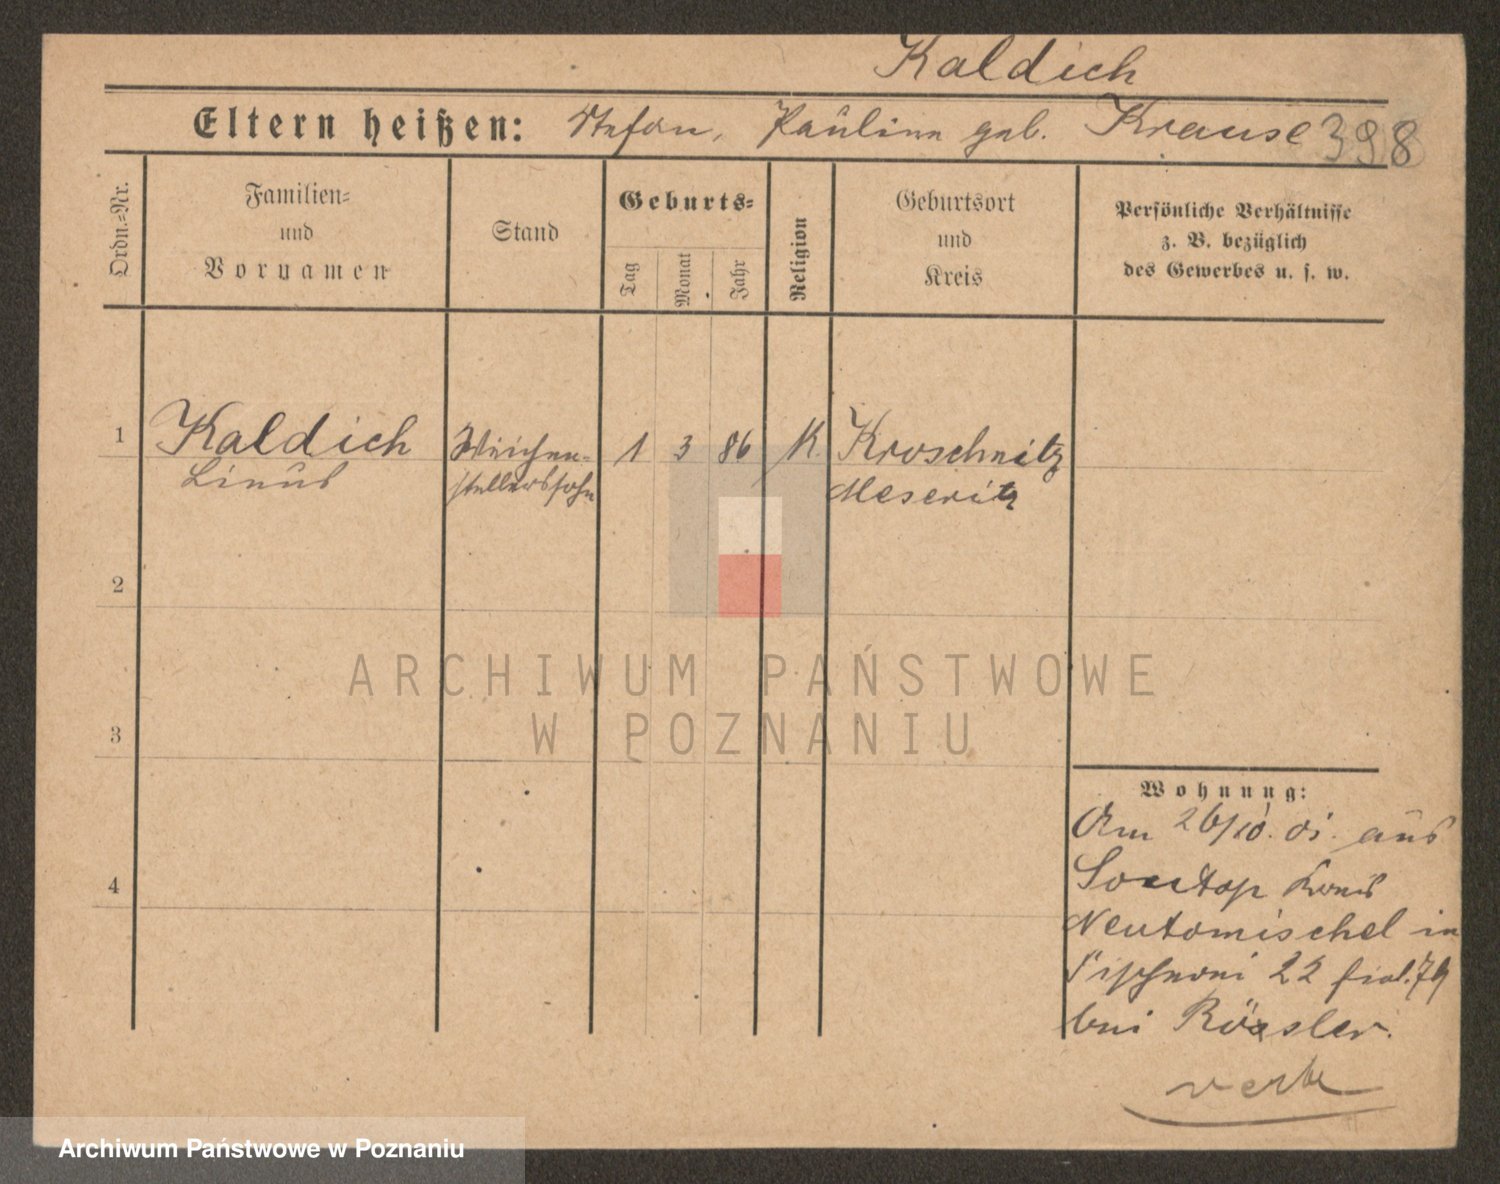 Kaldich
Eltern heißen: Stefan, Pauline geb. Krause 398
Ordn.-Nr.
Familien-
und
Vornamen
Stand
Geburts-
Tag
Monat
Jahr
Religion
Geburtsort
und
Kreis
Persönliche Verhältnisse
z. B. bezüglich
des Gewerbes u. s. w.
1 Kaldich Weichen- 1 3 86 K. Kroschnitz
Linus stellerssohn Meseritz
2
3
4
Wohnung:
Am 26/10. 01. aus
Sontop Kreis
Neutomischel in
22
bei Rößler.
ARCHIWUM PAŃSTWOWE
W POZNANIU
Archiwum Państwowe w Poznaniu